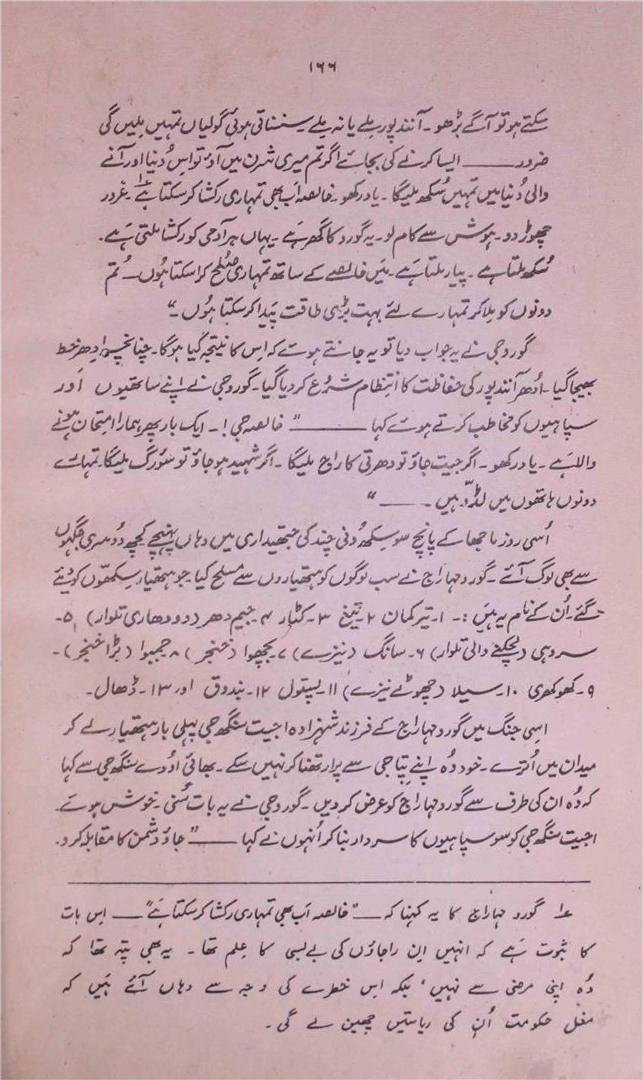 ۱۶۶
سکتے ہو تو آگے بڑھو۔ آنندپور ملے یا نہ ملے سنسناتی ہوئی گولیاں تمہیں ملیں گی
ضرور ــــــ ایسا کرنے کی بجائے اگر تم میری شرن میں آؤ تو اِس دُنیا اور آنے
والی دُنیا میں تمہیں سُکھ ملیگا۔ یاد رکھو۔ خالصہ اَب بھی تمہاری رکشا کر سکتا ہے ؎۱ غرور
چھوڑ دو۔ ہوش سے کام لو۔ یہ گورو کا گھر ہے۔ یہاں ہر آدمی کو رکشا ملتی ہے۔
سُکھ ملتا ہے۔ پیار ملتا ہے۔ میں خالصے کے ساتھ تمہاری صُلح کرا سکتا ہُوں۔ تُم
دونوں کو ملا کر تمہارے لئے بہت بڑی طاقت پیدا کر سکتا ہُوں۔"
گوروجی نے یہ جواب دیا تو یہ جانتے ہوئے کہ اِس کا نتیجہ کیا ہو گا۔ چنانچہ اِدھر خط
بھیجا گیا۔ اُدھر آنندپور کی حفاظت کا انتظام شروع کر دیا گیا۔ گوروجی نے اپنے ساتھیوں اور
سپاہیوں کو مخاطب کرتے ہوئے کہا ــــــ "خالصہ جی!۔ ایک بار پھر ہمارا امتحان ہونے
والا ہے۔ یاد رکھو۔ اگر جیت جاؤ تو دھرتی کا راج ملیگا۔ اگر شہید ہو جاؤ تو سَورگ ملیگا۔ تمہارے
دونوں ہاتھوں میں لڈّو ہیں۔ ــــ"
اُسی روز ماجھا کے پانچ سو سِکھ دُنی چند کی جتھیداری میں وہاں پہنچے کچھ دُوسری جگہوں
سے بھی لوگ آئے۔ گورو مہاراج نے سب لوگوں کو ہتھیاروں سے مسلح کیا۔ جو ہتھیار سِکھوں کو دیئے
گئے۔ اُن کے نام یہ ہیں :۔ ۱۔ تیر کمان ۲۔ تیغ ۳۔ کٹار ۴۔ جیم دھر (دو دھاری تلوار) ۵۔
سروہی (لچکنے والی تلوار) ۶۔ سانگ (نیزے) ۷۔ بچھوا (خنجر) ۸۔ جمبوا (بڑا خنجر)۔
۹۔ کھوکھری ۱۰۔ سیلا (چھوٹے نیزے) ۱۱۔ پستول ۱۲۔ بندوق اور ۱۳۔ ڈھال۔
اسی جنگ میں گورو مہاراج کے فرزند شہزادہ اجیت سنگھ جی پہلی بار ہتھیار لے کر
میدان میں اُترے۔ خود وُہ اپنے پِتا جی سے پرارتھنا کر نہیں سکے۔ بھائی اودے سنگھ جی سے کہا
کہ وُہ ان کی طرف سے گورو مہاراج کو عرض کر دیں۔ گوروجی نے یہ بات سُنی۔ خوش ہوئے۔
اجیت سنگھ جی کو سو سپاہیوں کا سردار بنا کر اُنہوں نے کہا ــــ "جاؤ دشمن کا مقابلہ کرو۔
؎۱ گورو مہاراج کا یہ کہنا کہ ــ "خالصہ اَب بھی تمہاری رکشا کر سکتا ہے" ــ اِس بات
کا ثبوت ہے کہ انہیں اِن راجاؤں کی بے بسی کا عِلم تھا۔ یہ بھی پتہ تھا کہ
وُہ اپنی مرضی سے نہیں، بلکہ اس خطرے کی وجہ سے وہاں آئے ہیں کہ
مغل حکومت اُن کی ریاستیں چھین لے گی۔